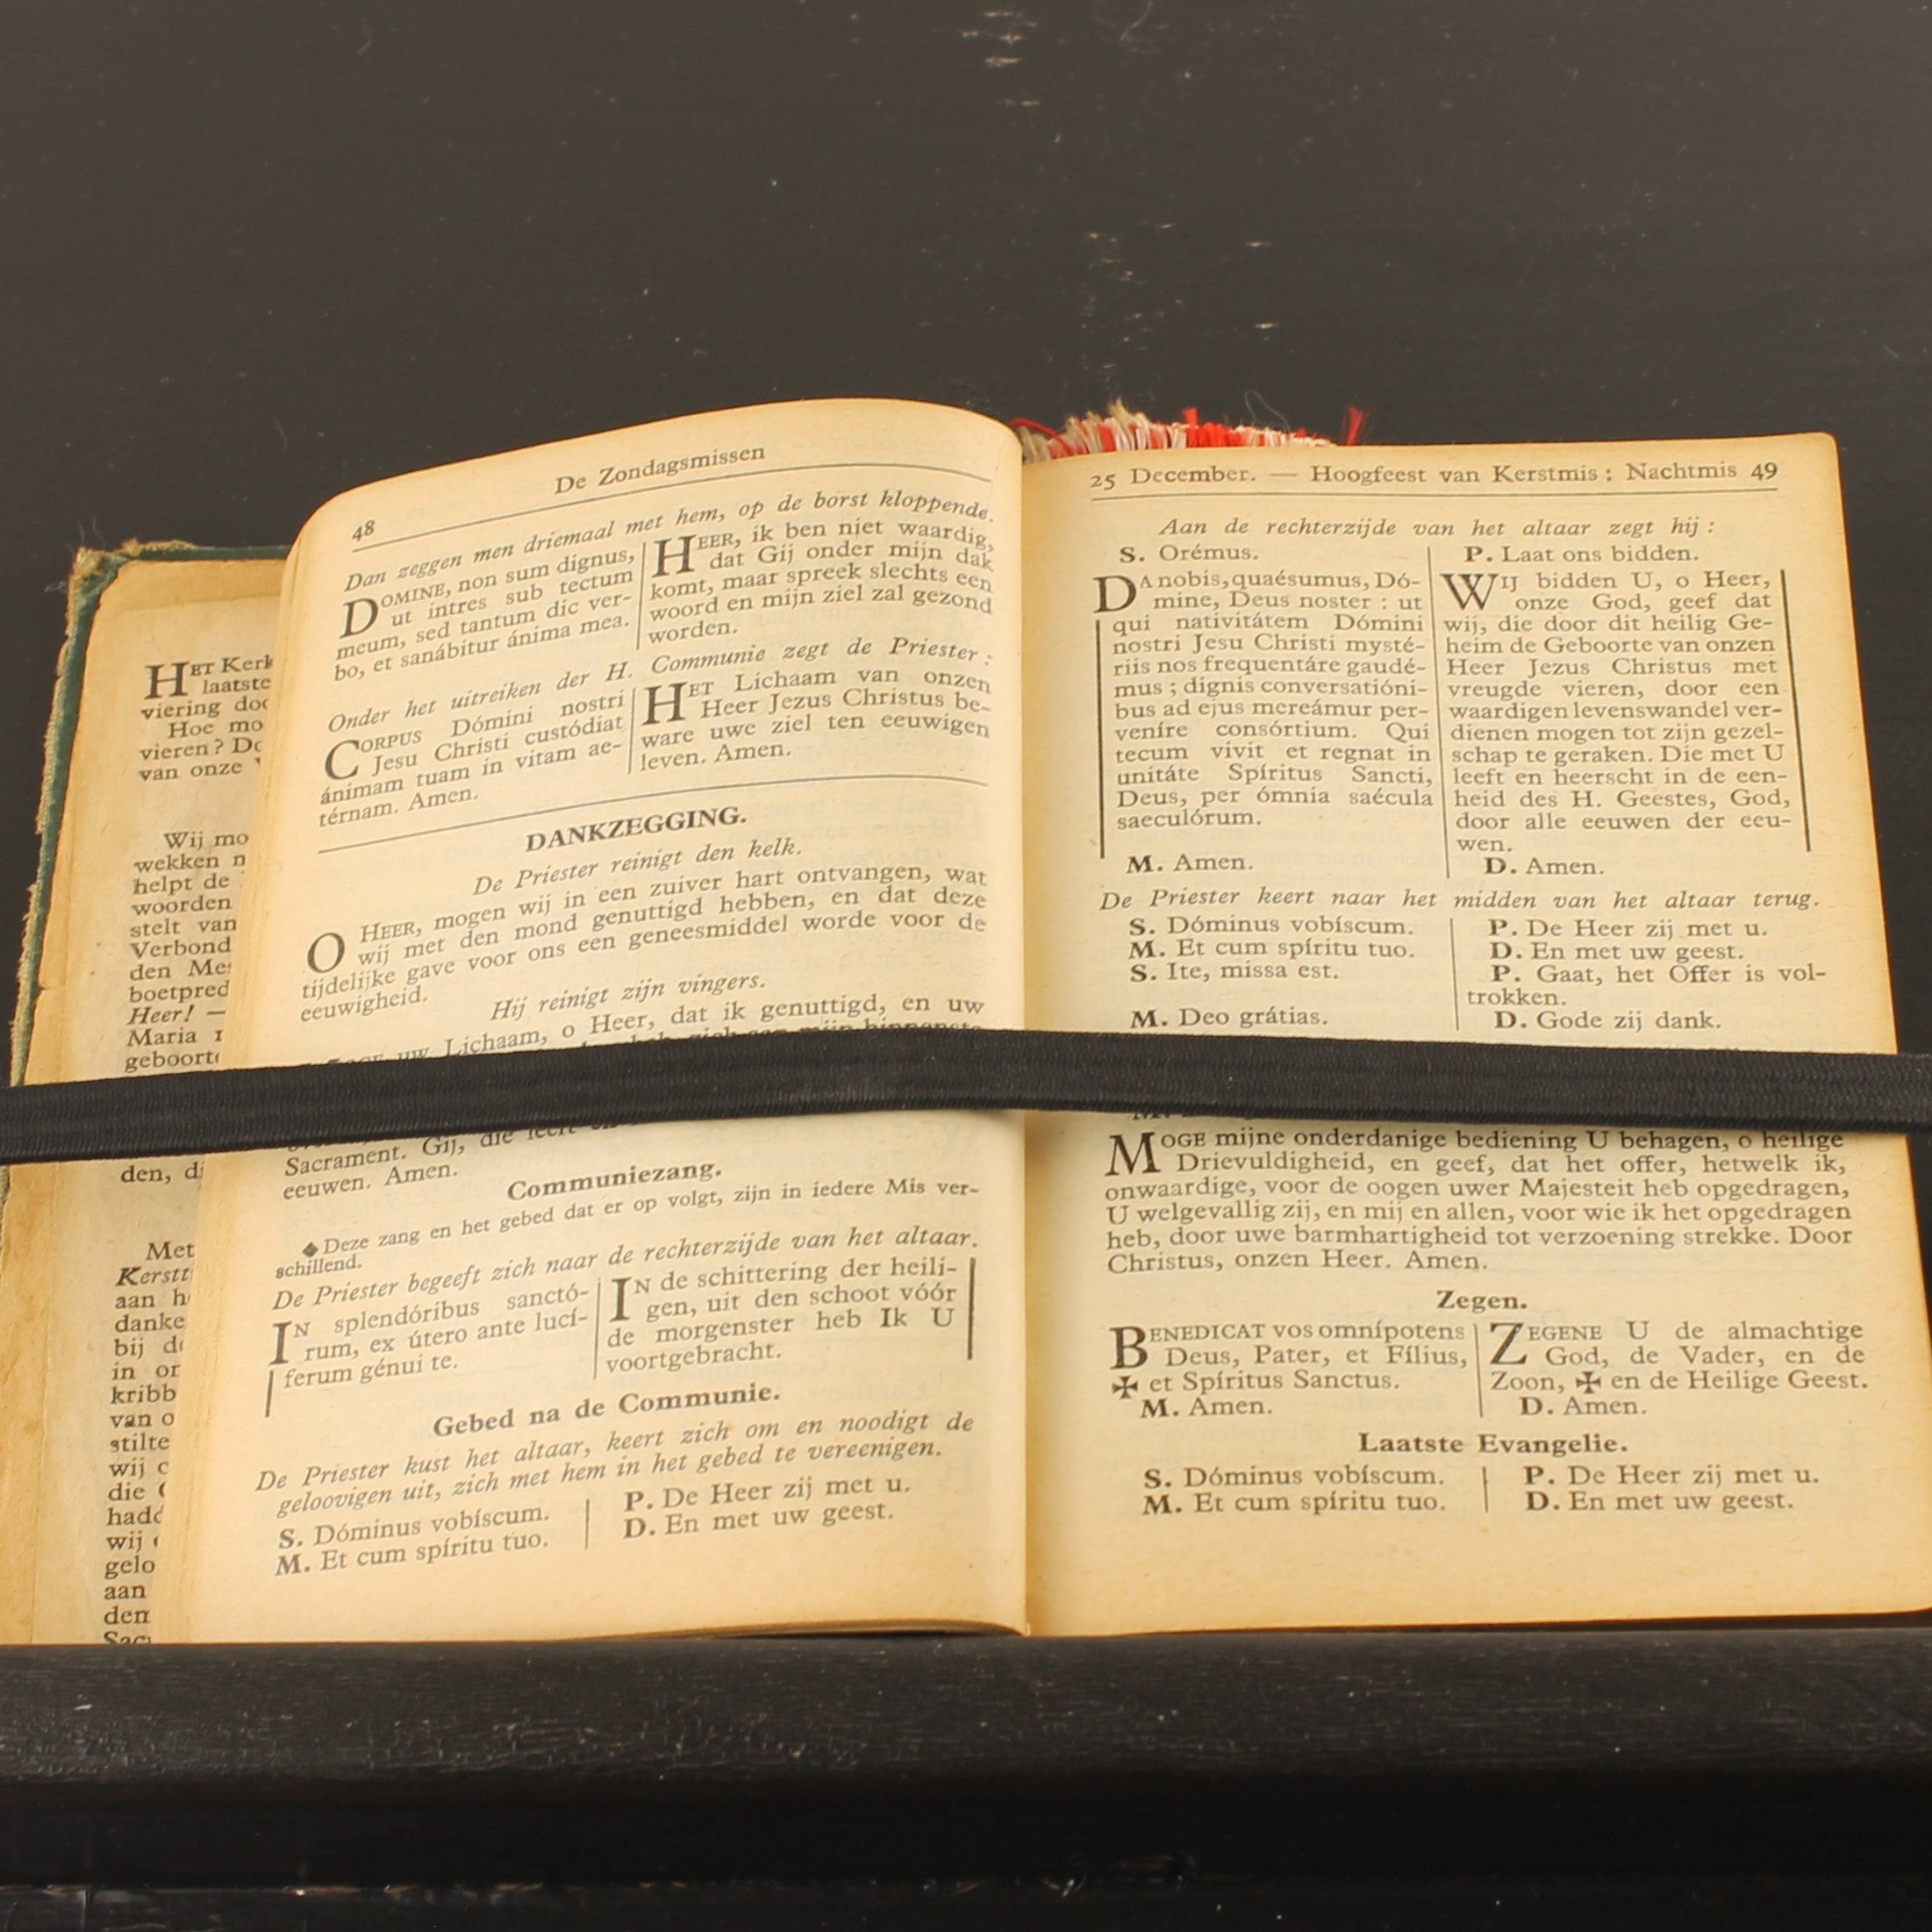 HET Kerk
laatste
viering doo
Hoe mo
vieren? Do
van onze
Wij mo
wekken
helpt de
woorden
stelt van
Verbond
den
boetpred
Heer! —
Maria
geboort
den,
Met
Kerstt
aan
danke
bij
in
kribb
van
stilte
wij
die
hadd
wij
gelo
aan
den
48
De Zondagsmissen
Dan zeggen men driemaal met hem, op de borst kloppende.
DOMINE, non sum dignus,
ut intres sub tectum
meum, sed tantum dic ver-
bo, et sanábitur ánima mea.
HEER, ik ben niet waardig,
dat Gij onder mijn dak
komt, maar spreek slechts een
woord en mijn ziel zal gezond
worden.
Onder het uitreiken der H. Communie zegt de Priester :
CORPUS Dómini nostri
Jesu Christi custódiat
ánimam tuam in vitam ae-
térnam. Amen.
HET Lichaam van onzen
Heer Jezus Christus be-
ware uwe ziel ten eeuwigen
leven. Amen.
DANKZEGGING.
De Priester reinigt den kelk.
O HEER, mogen wij in een zuiver hart ontvangen, wat
wij met den mond genuttigd hebben, en dat deze
tijdelijke gave voor ons een geneesmiddel worde voor de
eeuwigheid.
Hij reinigt zijn vingers.
uw Lichaam, o Heer, dat ik genuttigd, en uw
Sacrament. Gij, die leeft
eeuwen. Amen.
Communiezang.
◆ Deze zang en het gebed dat er op volgt, zijn in iedere Mis ver-
schillend.
De Priester begeeft zich naar de rechterzijde van het altaar.
IN splendóribus sanctó-
rum, ex útero ante lucí-
ferum génui te.
IN de schittering der heili-
gen, uit den schoot vóór
de morgenster heb Ik U
voortgebracht.
Gebed na de Communie.
De Priester kust het altaar, keert zich om en noodigt de
geloovigen uit, zich met hem in het gebed te vereenigen.
S. Dóminus vobíscum.
M. Et cum spíritu tuo.
P. De Heer zij met u.
D. En met uw geest.
25 December. — Hoogfeest van Kerstmis : Nachtmis 49
Aan de rechterzijde van het altaar zegt hij :
S. Orémus.
DA nobis, quaésumus, Dó-
mine, Deus noster : ut
qui nativitátem Dómini
nostri Jesu Christi mysté-
riis nos frequentáre gaudé-
mus ; dignis conversatióni-
bus ad ejus mereámur per-
veníre consórtium. Qui
tecum vivit et regnat in
unitáte Spíritus Sancti,
Deus, per ómnia saécula
saeculórum.
M. Amen.
P. Laat ons bidden.
WIJ bidden U, o Heer,
onze God, geef dat
wij, die door dit heilig Ge-
heim de Geboorte van onzen
Heer Jezus Christus met
vreugde vieren, door een
waardigen levenswandel ver-
dienen mogen tot zijn gezel-
schap te geraken. Die met U
leeft en heerscht in de een-
heid des H. Geestes, God,
door alle eeuwen der eeu-
wen.
D. Amen.
De Priester keert naar het midden van het altaar terug.
S. Dóminus vobíscum.
M. Et cum spíritu tuo.
S. Ite, missa est.
M. Deo grátias.
P. De Heer zij met u.
D. En met uw geest.
P. Gaat, het Offer is vol-
trokken.
D. Gode zij dank.
MOGE mijne onderdanige bediening U behagen, o heilige
Drievuldigheid, en geef, dat het offer, hetwelk ik,
onwaardige, voor de oogen uwer Majesteit heb opgedragen,
U welgevallig zij, en mij en allen, voor wie ik het opgedragen
heb, door uwe barmhartigheid tot verzoening strekke. Door
Christus, onzen Heer. Amen.
Zegen.
BENEDICAT vos omnípotens
Deus, Pater, et Fílius,
✠ et Spíritus Sanctus.
M. Amen.
ZEGENE U de almachtige
God, de Vader, en de
Zoon, ✠ en de Heilige Geest.
D. Amen.
Laatste Evangelie.
S. Dóminus vobíscum.
M. Et cum spíritu tuo.
P. De Heer zij met u.
D. En met uw geest.